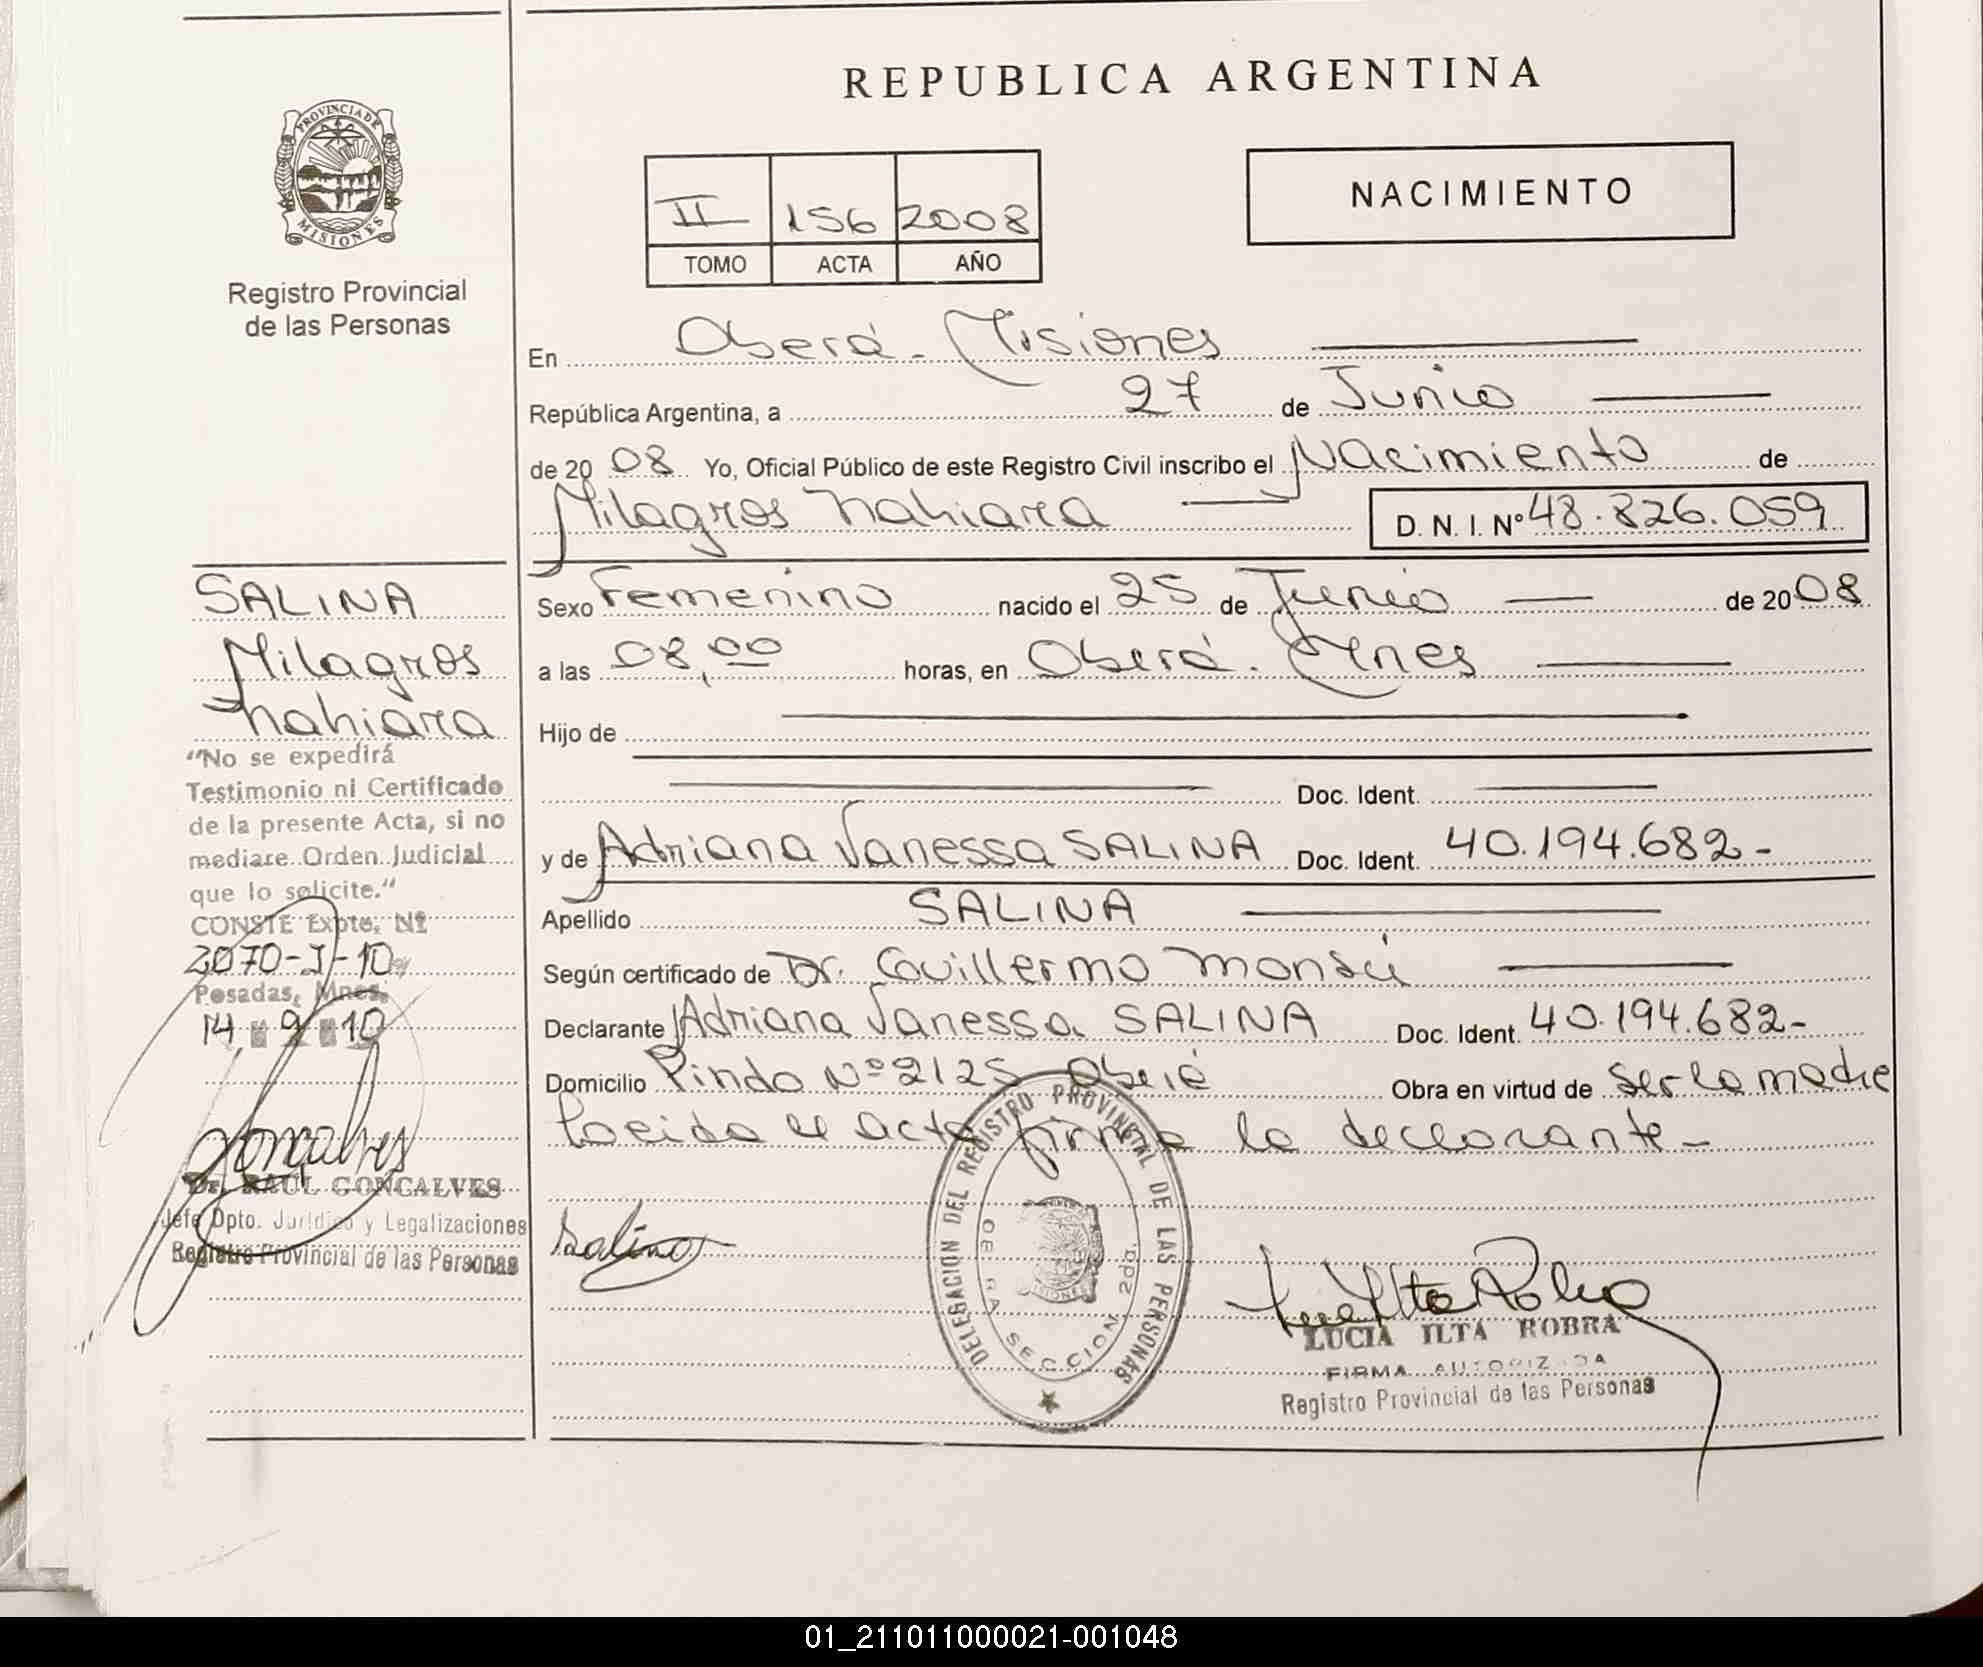 REPUBLICA ARGENTINA
PROVINCIA DE
MISIONES
Registro Provincial
de las Personas
II 156 2008
TOMO ACTA AÑO
NACIMIENTO
En Oberá - Misiones
República Argentina, a 27 de Junio
de 2008 Yo, Oficial Público de este Registro Civil inscribo el Nacimiento de
Milagros Nahiara D. N. I. Nº 48.826.059
SALINA
Milagros
Nahiara
"No se expedirá
Testimonio ni Certificado
de la presente Acta, si no
mediare Orden Judicial
que lo solicite."
CONSTE Expte. Nº
3070-J-10
Posadas, Mnes.
14 9 10
Dr. RAUL GONCALVES
Jefe Dpto. Jurídico y Legalizaciones
Registro Provincial de las Personas
Sexo Femenino nacido el 25 de Junio de 2008
a las 08,00 horas, en Oberá. Mnes
Hijo de
Doc. Ident.
y de Adriana Vanessa SALINA Doc. Ident. 40.194.682-
Apellido SALINA
Según certificado de Dr. Guillermo Monsú
Declarante Adriana Vanessa SALINA Doc. Ident. 40.194.682-
Domicilio Pindo Nº 2125 Oberá Obra en virtud de ser la madre
Leida el acta firma la declarante-
Salina
DELEGACION DEL REGISTRO PROVINCIAL DE LAS PERSONAS
OBERA SECCION 2da.
LUCIA ILTA ROBRA
FIRMA AUTORIZADA
Registro Provincial de las Personas
01_211011000021-001048